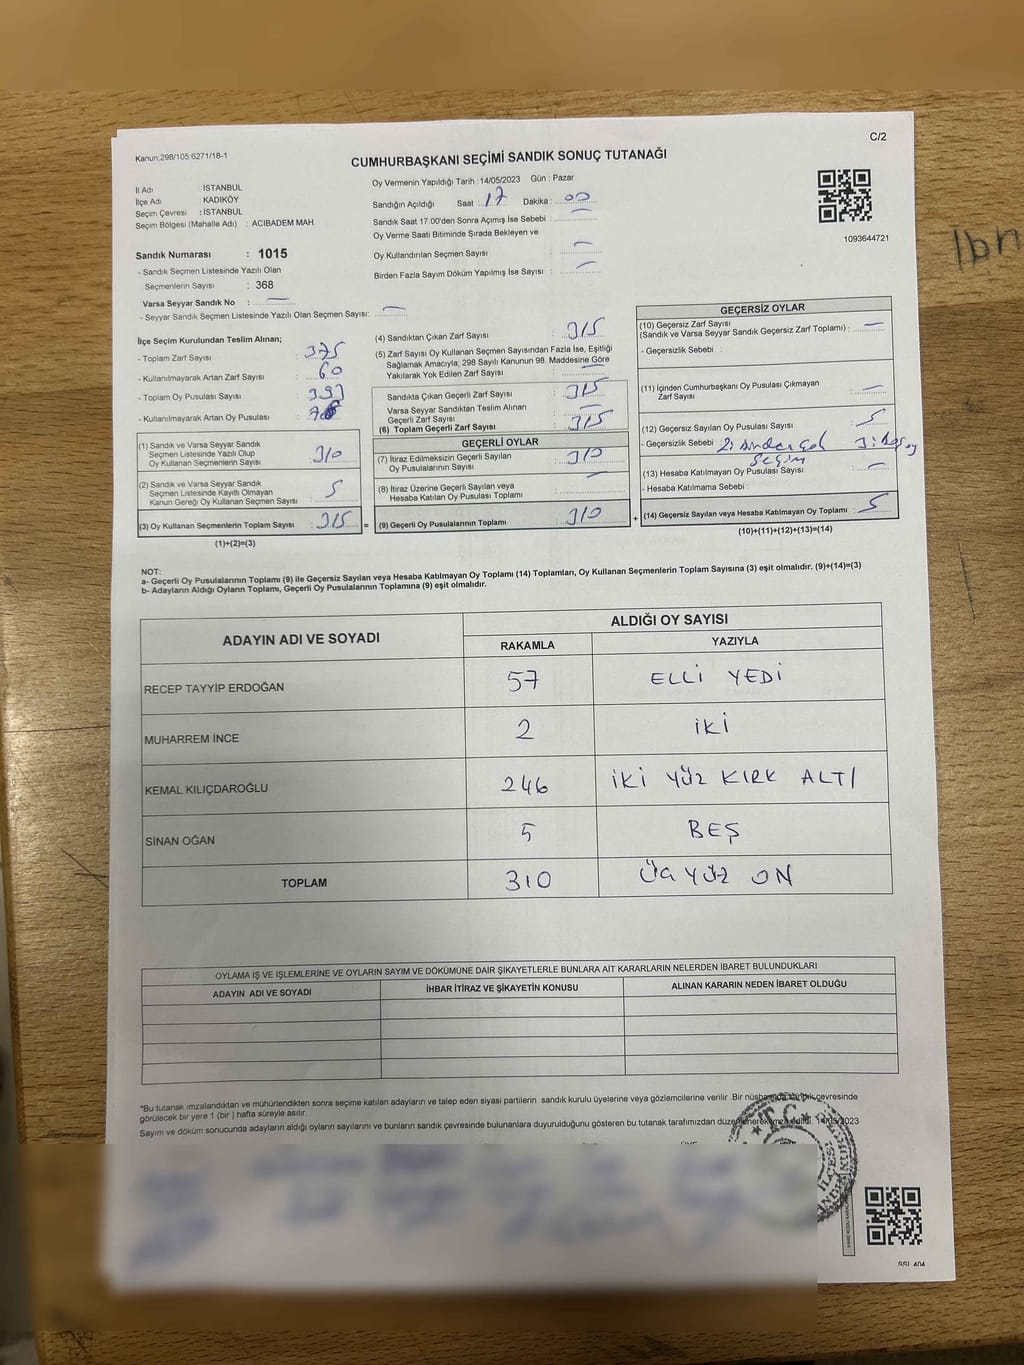 C/2
Kanun:298/105:6271/18-1
CUMHURBAŞKANI SEÇİMİ SANDIK SONUÇ TUTANAĞI
İl Adı : İSTANBUL
İlçe Adı : KADIKÖY
Seçim Çevresi : İSTANBUL
Seçim Bölgesi (Mahalle Adı) : ACIBADEM MAH.
Oy Vermenin Yapıldığı Tarih :14/05/2023 Gün : Pazar
Sandığın Açıldığı Saat : 17 Dakika : 00
Sandık Saat 17:00'den Sonra Açımış İse Sebebi : —
Oy Verme Saati Bitiminde Sırada Bekleyen ve
Oy Kullandırılan Seçmen Sayısı : —
Birden Fazla Sayım Döküm Yapılmış İse Sayısı : —
1093644721
Ibn
Sandık Numarası : 1015
- Sandık Seçmen Listesinde Yazılı Olan
Seçmenlerin Sayısı : 368
Varsa Seyyar Sandık No : —
- Seyyar Sandık Seçmen Listesinde Yazılı Olan Seçmen Sayısı: —
İlçe Seçim Kurulundan Teslim Alınan;
- Toplam Zarf Sayısı : 375
- Kullanılmayarak Artan Zarf Sayısı : 60
- Toplam Oy Pusulası Sayısı : 393
- Kullanılmayarak Artan Oy Pusulası :
(1) Sandık ve Varsa Seyyar Sandık
Seçmen Listesinde Yazılı Olup
Oy Kullanan Seçmenlerin Sayısı : 310
(2) Sandık ve Varsa Seyyar Sandık
Seçmen Listesinde Kayıtlı Olmayan
Kanun Gereği Oy Kullanan Seçmen Sayısı : 5
(3) Oy Kullanan Seçmenlerin Toplam Sayısı : 315 =
(1)+(2)=(3)
(4) Sandıktan Çıkan Zarf Sayısı : 315
(5) Zarf Sayısı Oy Kullanan Seçmen Sayısından Fazla İse, Eşitliği
Sağlamak Amacıyla; 298 Sayılı Kanunun 98. Maddesine Göre
Yakılarak Yok Edilen Zarf Sayısı : —
Sandıkta Çıkan Geçerli Zarf Sayısı : 315
Varsa Seyyar Sandıktan Teslim Alınan
Geçerli Zarf Sayısı : —
(6) Toplam Geçerli Zarf Sayısı : 315
GEÇERLİ OYLAR
(7) İtiraz Edilmeksizin Geçerli Sayılan
Oy Pusulalarının Sayısı : 310
(8) İtiraz Üzerine Geçerli Sayılan veya
Hesaba Katılan Oy Pusulası Toplamı : —
(9) Geçerli Oy Pusulalarının Toplamı : 310 +
GEÇERSİZ OYLAR
(10) Geçersiz Zarf Sayısı
(Sandık ve Varsa Seyyar Sandık Geçersiz Zarf Toplamı) : —
- Geçersizlik Sebebi :
(11) İçinden Cumhurbaşkanı Oy Pusulası Çıkmayan
Zarf Sayısı : —
(12) Geçersiz Sayılan Oy Pusulası Sayısı : 5
- Geçersizlik Sebebi : 2: birden çok 3: Boş oy
seçim
(13) Hesaba Katılmayan Oy Pusulası Sayısı : —
- Hesaba Katılmama Sebebi :
(14) Geçersiz Sayılan veya Hesaba Katılmayan Oy Toplamı : 5
(10)+(11)+(12)+(13)=(14)
NOT:
a- Geçerli Oy Pusulalarının Toplamı (9) ile Geçersiz Sayılan veya Hesaba Katılmayan Oy Toplamı (14) Toplamları, Oy Kullanan Seçmenlerin Toplam Sayısına (3) eşit olmalıdır. (9)+(14)=(3)
b- Adayların Aldığı Oyların Toplamı, Geçerli Oy Pusulalarının Toplamına (9) eşit olmalıdır.
ADAYIN ADI VE SOYADI
ALDIĞI OY SAYISI
RAKAMLA YAZIYLA
RECEP TAYYİP ERDOĞAN 57 ELLİ YEDİ
MUHARREM İNCE 2 İKİ
KEMAL KILIÇDAROĞLU 246 İKİ YÜZ KIRK ALTI
SİNAN OĞAN 5 BEŞ
TOPLAM 310 ÜÇ YÜZ ON
OYLAMA İŞ VE İŞLEMLERİNE VE OYLARIN SAYIM VE DÖKÜMÜNE DAİR ŞİKAYETLERLE BUNLARA AİT KARARLARIN NELERDEN İBARET BULUNDUKLARI
ADAYIN ADI VE SOYADI İHBAR İTİRAZ VE ŞİKAYETİN KONUSU ALINAN KARARIN NEDEN İBARET OLDUĞU
*Bu tutanak imzalandıktan ve mühürlendikten sonra seçime katılan adayların ve talep eden siyasi partilerin sandık kurulu üyelerine veya gözlemcilerine verilir. Bir nüshası da sandık çevresinde
görülecek bir yere 1 (bir) hafta süreyle asılır.
Sayım ve döküm sonucunda adayların aldığı oyların sayılarını ve bunların sandık çevresinde bulunanlara duyurulduğunu gösteren bu tutanak tarafımızdan düzenlenerek imza edildi. 14/05/2023
T.C.